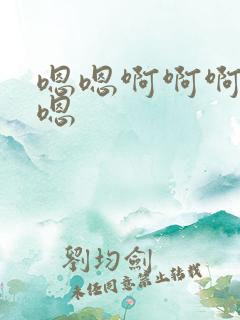 嗯嗯啊啊啊
嗯
劉均劍
未經同意禁止轉載